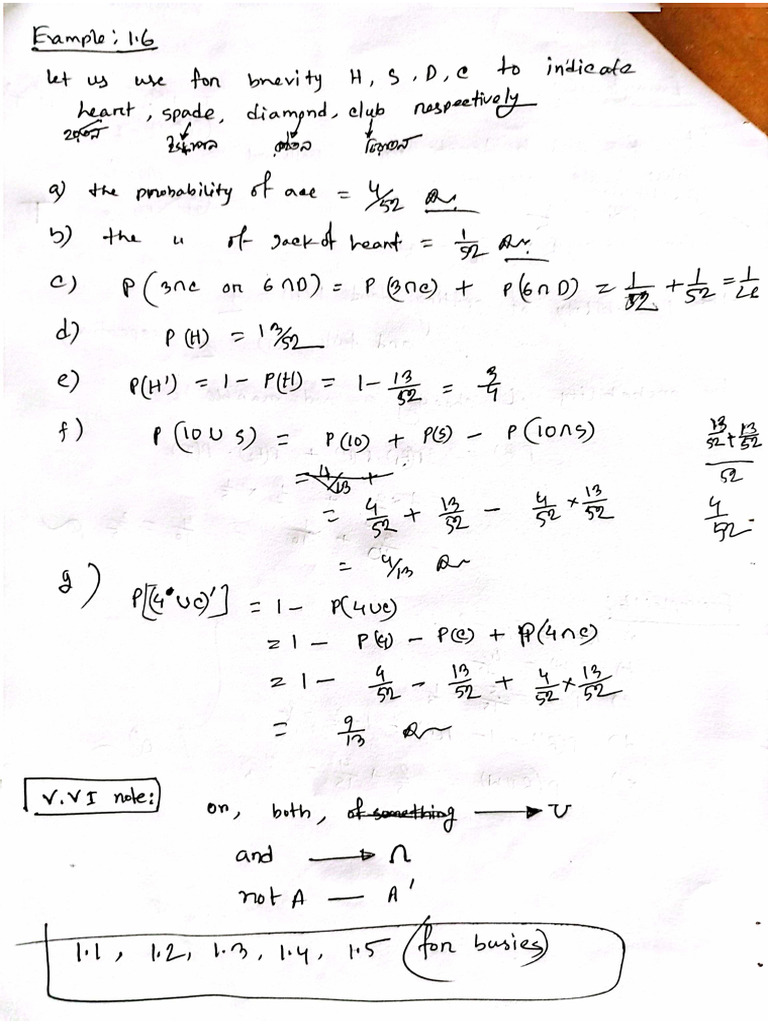 Example: 1.6
let us use for brevity H, S, D, C to indicate
heart, spade, diamond, club respectively
হরতন ইস্কাপন রুইতন চিরতন
a) the probability of ace = 4/52 Ans.
b) the " of Jack of heart = 1/52 Ans.
c) P(3∩C or 6∩D) = P(3∩C) + P(6∩D) = 1/52 + 1/52 = 1/26
d) P(H) = 13/52
e) P(H') = 1 - P(H) = 1 - 13/52 = 3/4
f) P(10 ∪ S) = P(10) + P(S) - P(10∩S)
= 4/13 +
= 4/52 + 13/52 - 4/52 × 13/52
= 4/13 Ans
13/52 + 13/52
52
4/52
g) P[(4∪C)'] = 1 - P(4∪C)
= 1 - P(4) - P(C) + P(4∩C)
= 1 - 4/52 - 13/52 + 4/52 × 13/52
= 9/13 Ans
V.V I note: or, both, of something → ∪
and → ∩
not A — A'
1.1, 1.2, 1.3, 1.4, 1.5 (for basics)